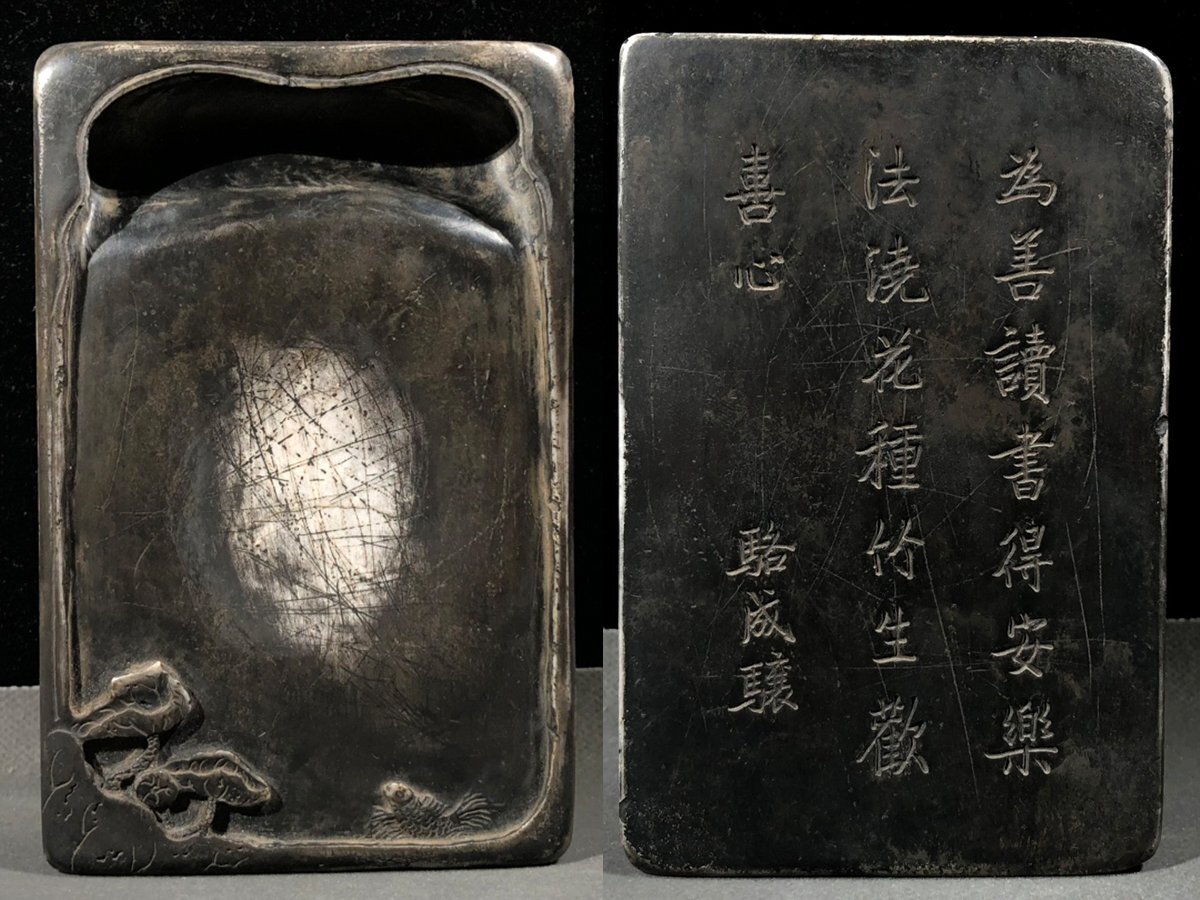 為善讀書得安樂
法澆花種竹生歡
喜心 駱成驤